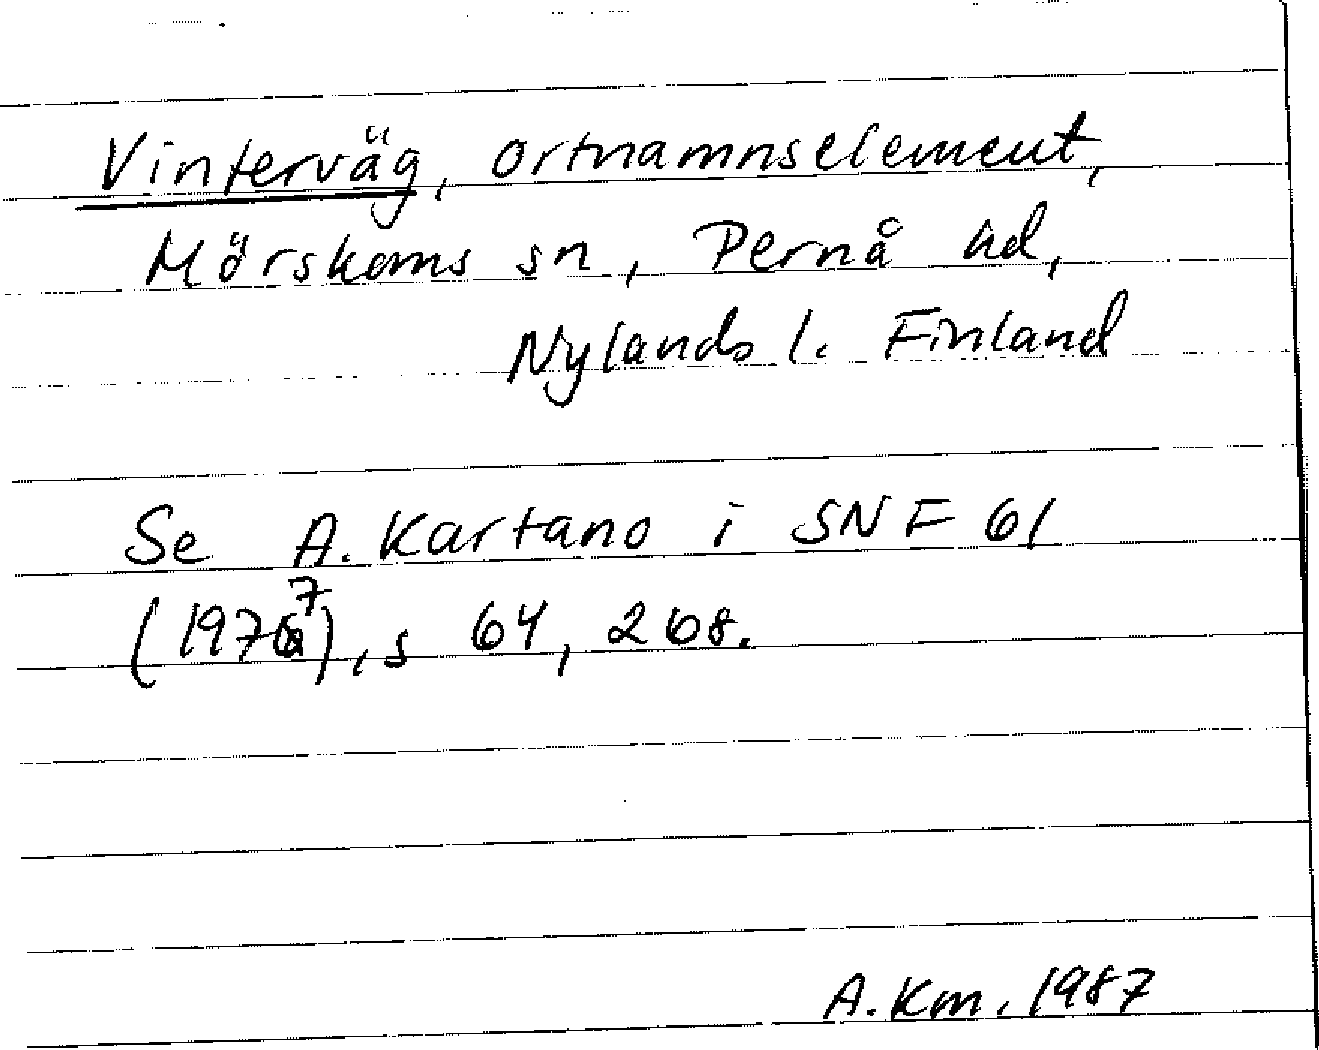 Vinterväg, ortnamnselement,
Mörskoms sn, Pernå hd,
Nylands l. Finland
Se A. Kartano i SNF 61
(1977), s 64, 268.
A. Km. 1987